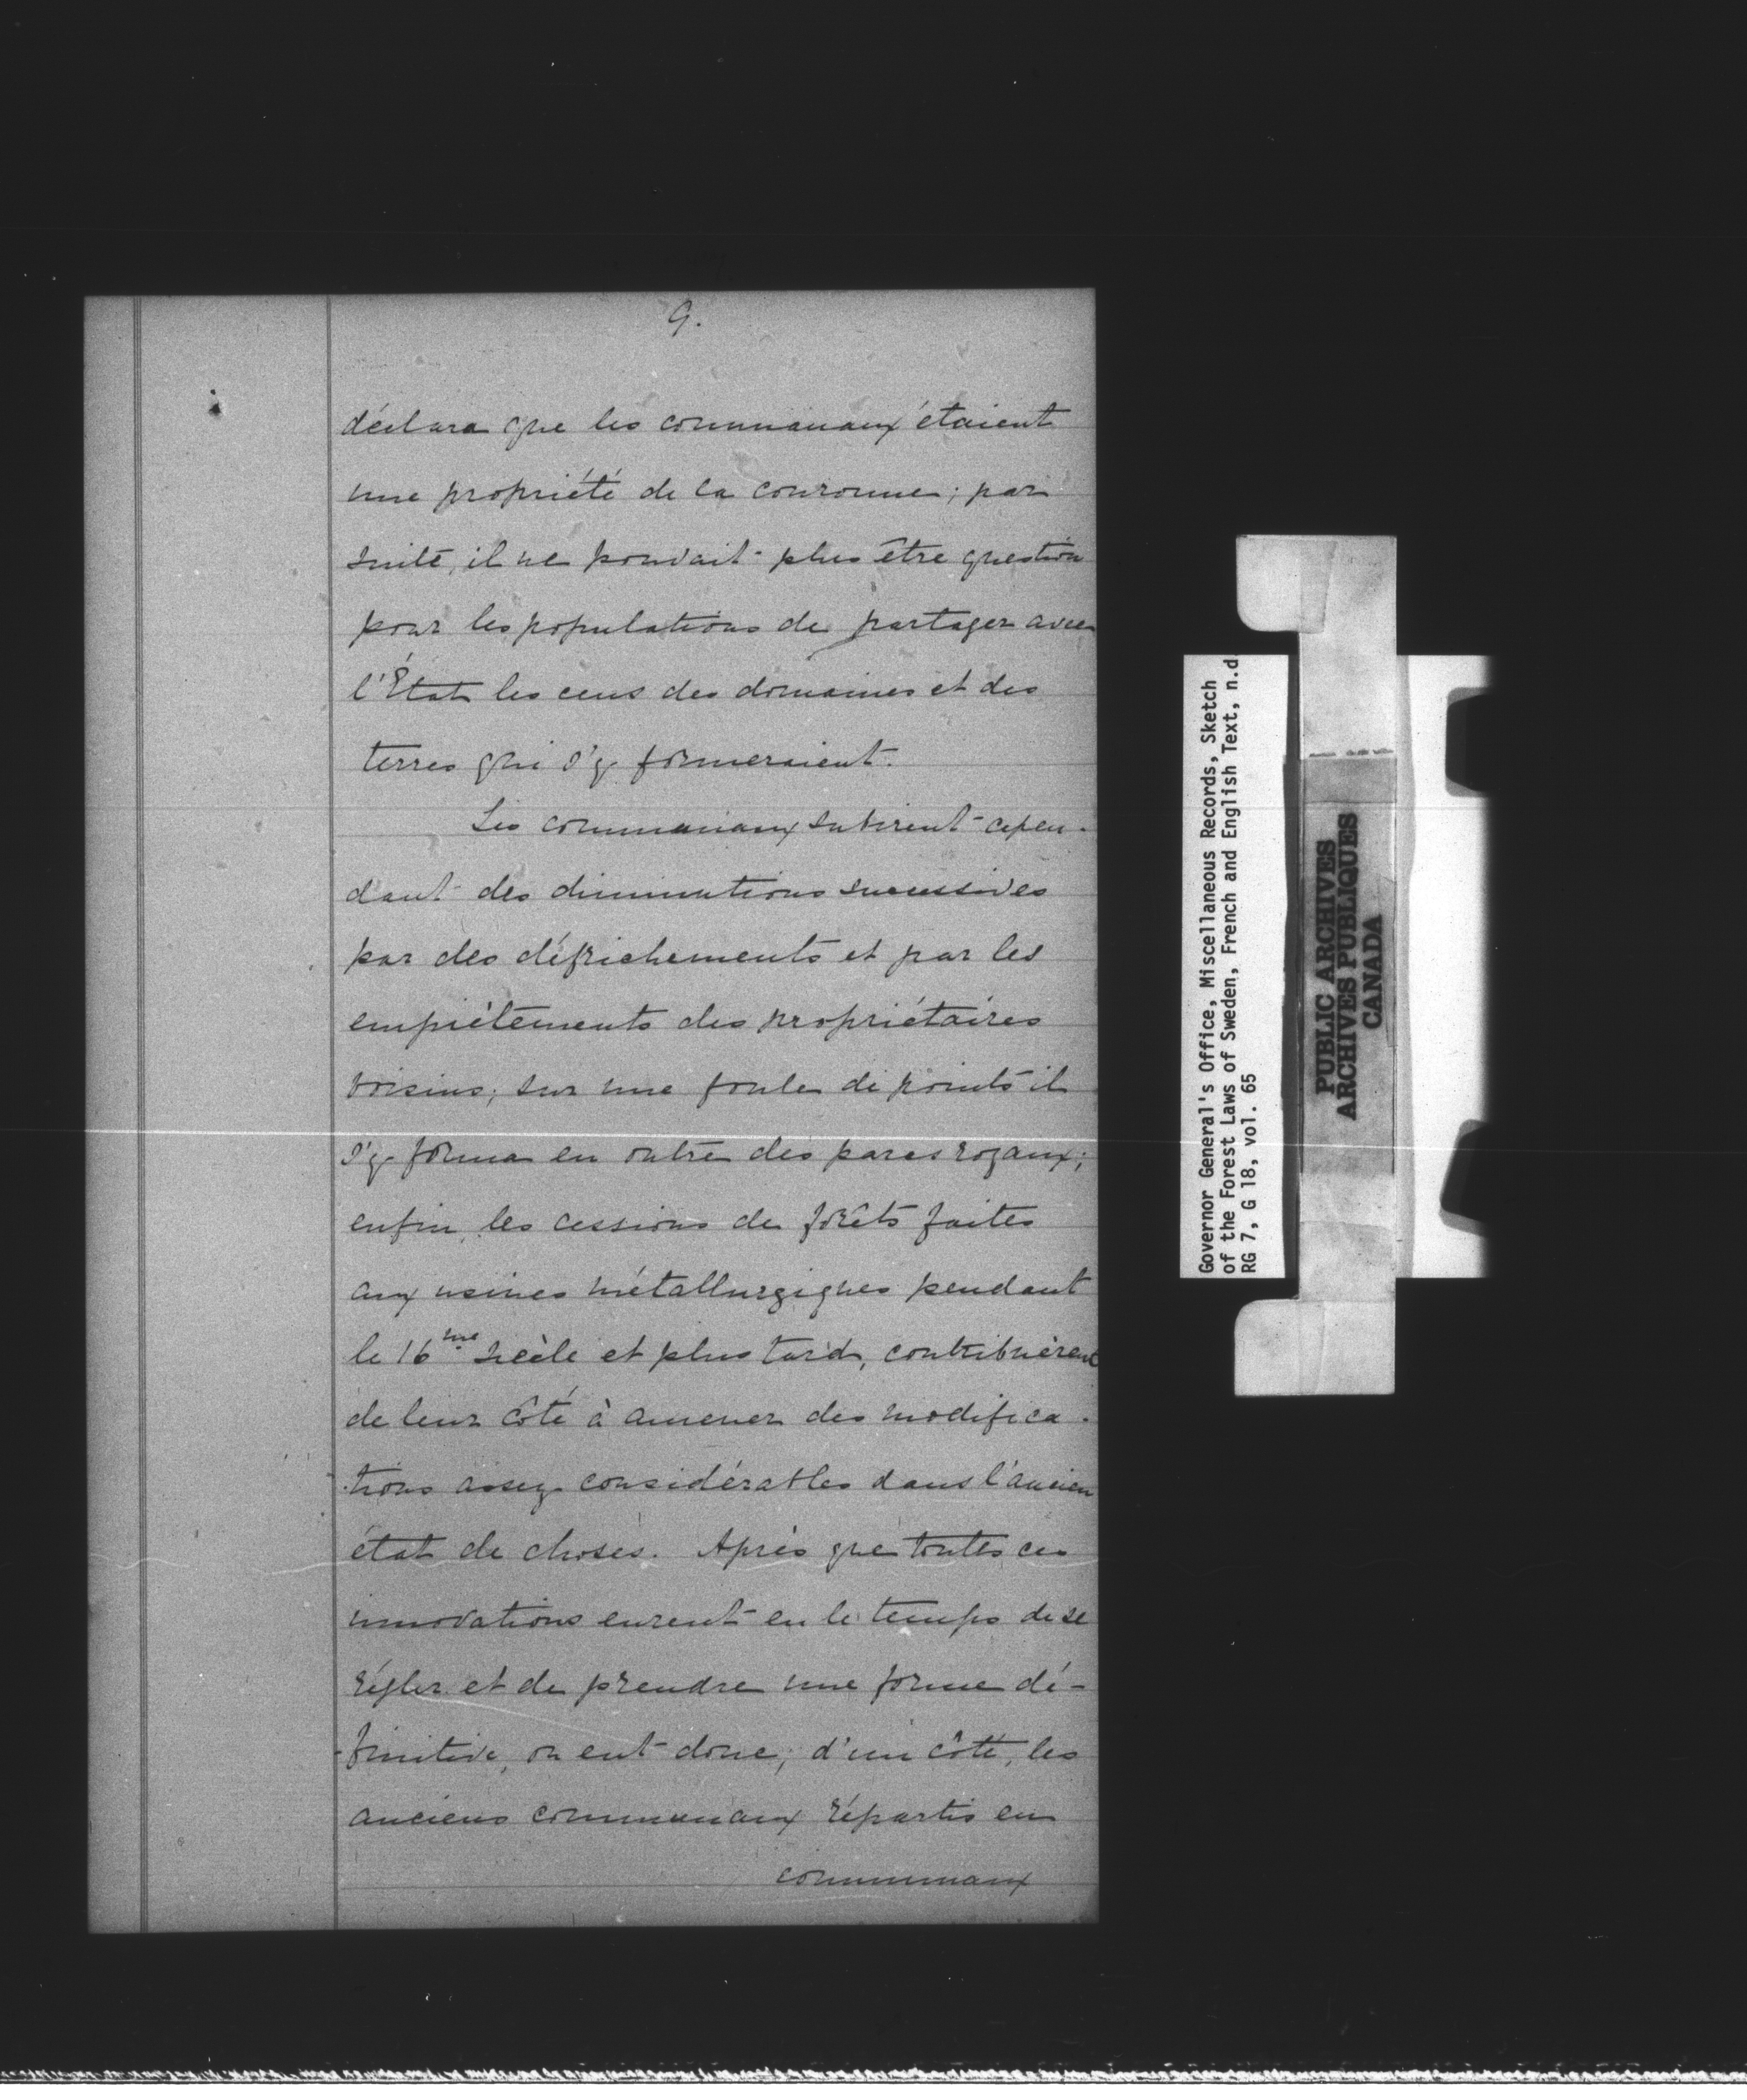 9.
déclara que les communaux étaient
une propriété de la couronne; par
suite, il ne pouvait plus être question
pour les populations de partager avec
l'État les cens des domaines et des
terres qui s'y formeraient.
Les communaux subirent cepen-
dant des diminutions successives
par des défrichements et par les
empiètements des propriétaires
voisins; sur une foule de points il
s'y forma en outre des parcs royaux;
enfin, les cessions de forêts faites
aux usines métallurgiques pendant
le 16me siècle et plus tard, contribuèrent
de leur côté à amener des modifica-
-tions assez considérables dans l'ancien
état de choses. Après que toutes ces
innovations eurent eu le temps de se
régler et de prendre une forme dé-
-finitive, on eut donc, d'un côté, les
anciens communaux répartis en
communaux
Governor General's Office, Miscellaneous Records, Sketch
of the Forest Laws of Sweden, French and English Text, n.d.
RG 7, G 18, vol. 65
PUBLIC ARCHIVES
ARCHIVES PUBLIQUES
CANADA